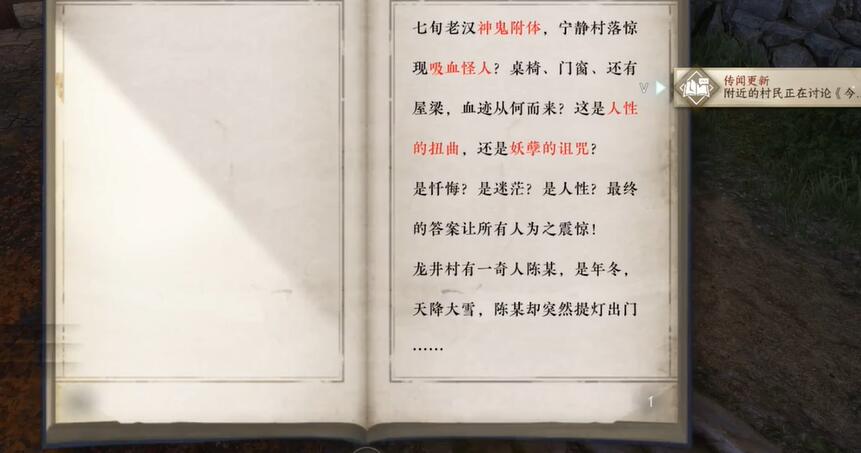 七旬老汉神鬼附体，宁静村落惊
现吸血怪人？桌椅、门窗、还有
屋梁，血迹从何而来？这是人性
的扭曲，还是妖孽的诅咒？
是忏悔？是迷茫？是人性？最终
的答案让所有人为之震惊！
龙井村有一奇人陈某，是年冬，
天降大雪，陈某却突然提灯出门
……
1
V
传闻更新
附近的村民正在讨论《今…